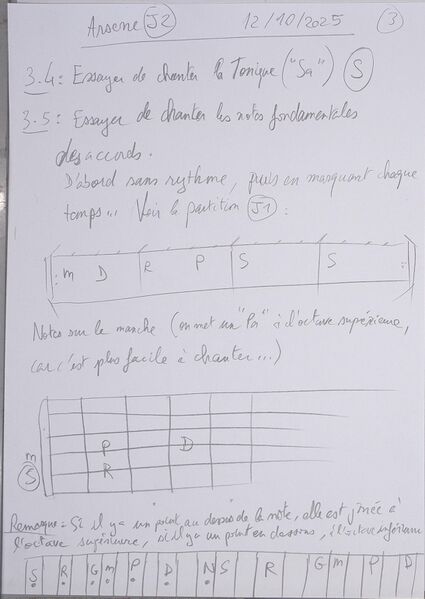 Arsene J2 12/10/2025 3
3.4: Essayer de chanter la Tonique ("Sa") S
3.5: Essayer de chanter les notes fondamentales
des accords.
D'abord sans rythme, puis en marquant chaque
temps... Voir la partition J1:
m D R P S S
Notes sur le manche (on met un "Pa" à l'octave supérieure,
car c'est plus facile à chanter...)
P D
m
S R
Remarque = Si il y a un point au dessus de la note, elle est jouée à
l'octave supérieure, si il y a un point en dessous, à l'octave inférieure
S R G m P D N S R G m P D